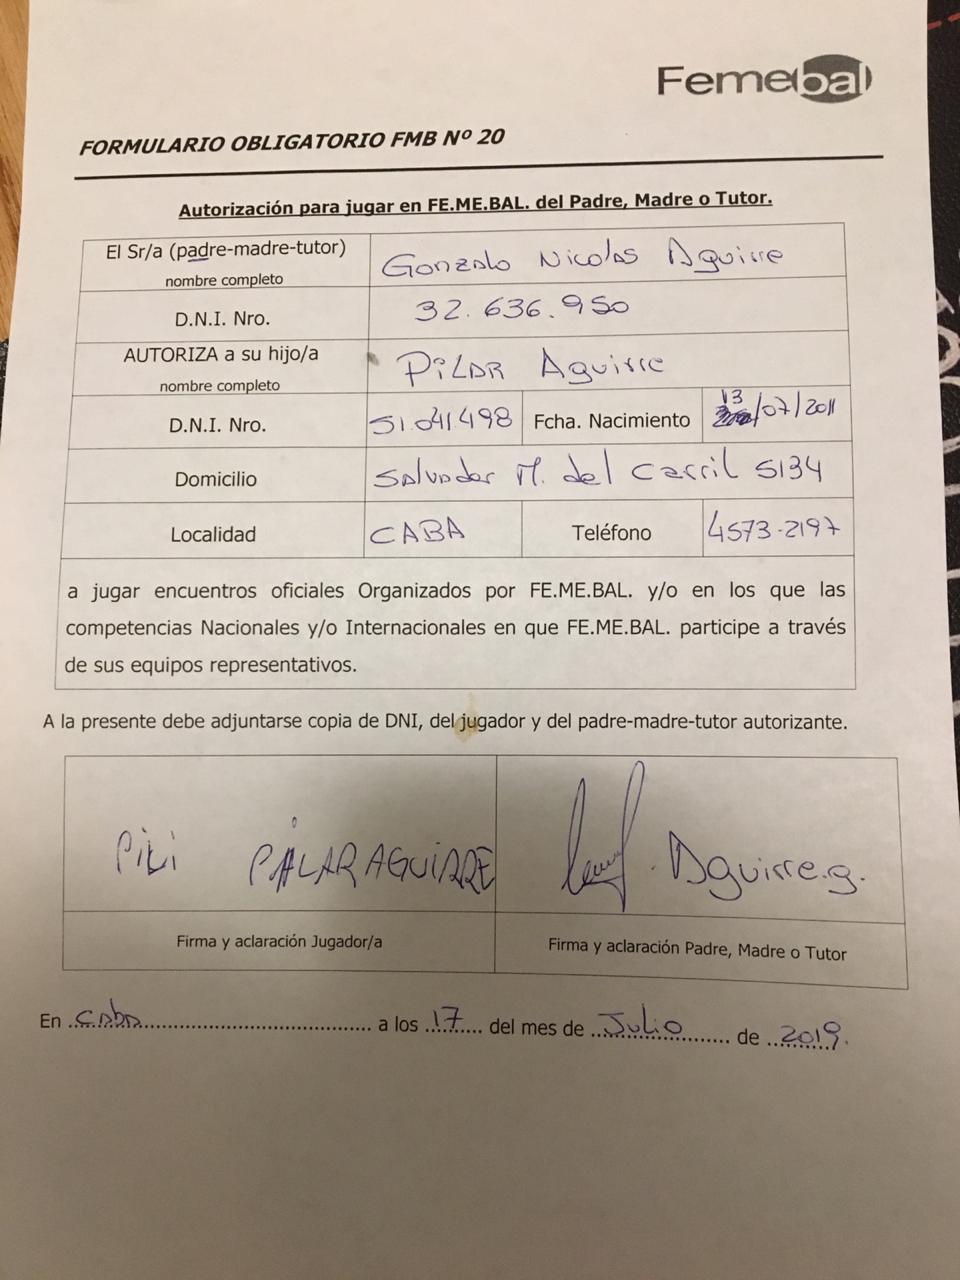 Femebal
FORMULARIO OBLIGATORIO FMB Nº 20
Autorización para jugar en FE.ME.BAL. del Padre, Madre o Tutor.
El Sr/a (padre-madre-tutor)
nombre completo
Gonzalo Nicolas Aguirre
D.N.I. Nro.
32.636.950
AUTORIZA a su hijo/a
nombre completo
PiLAR Aguirre
D.N.I. Nro.
51.041.498
Fcha. Nacimiento
13/07/2011
Domicilio
Salvador M. del Carril 5134
Localidad
CABA
Teléfono
4573-2197
a jugar encuentros oficiales Organizados por FE.ME.BAL. y/o en los que las
competencias Nacionales y/o Internacionales en que FE.ME.BAL. participe a través
de sus equipos representativos.
A la presente debe adjuntarse copia de DNI, del jugador y del padre-madre-tutor autorizante.
PiLi PILAR AGUIRRE
Aguirre.g.
Firma y aclaración Jugador/a
Firma y aclaración Padre, Madre o Tutor
En caba a los 17 del mes de Julio de 2019.